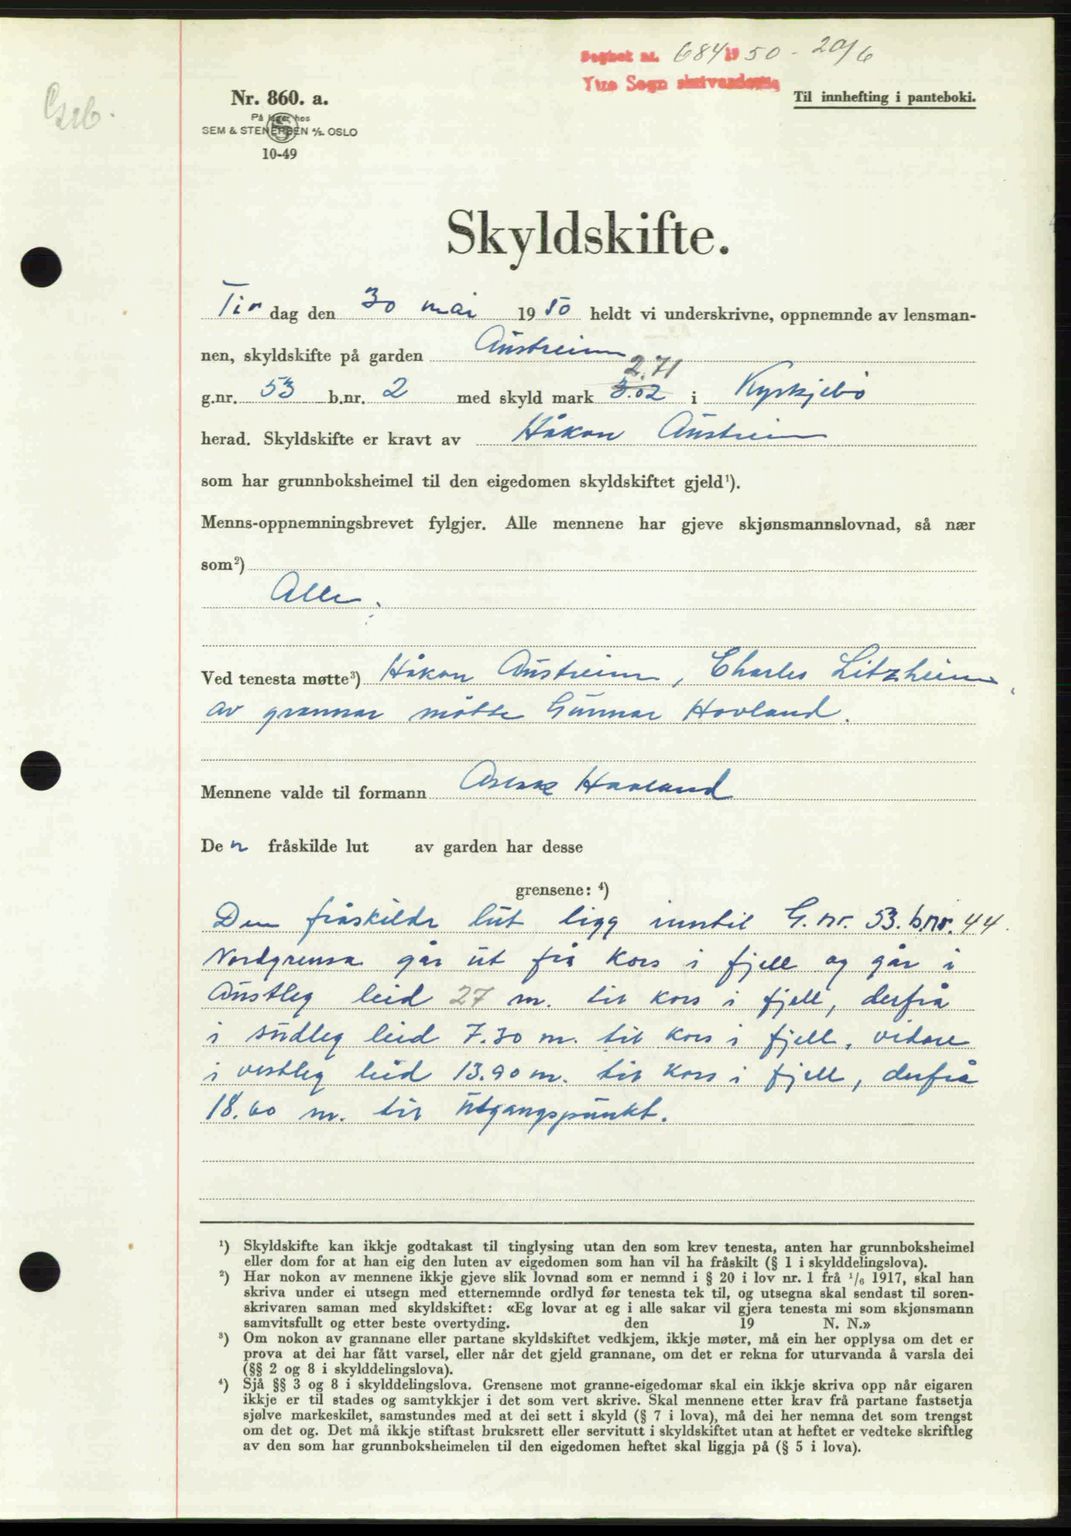 Dagbok nr. 684 1950 - 20/6
Ytre Sogn
Nr. 860. a.
På lager hos
SEM & STENERSEN A/S. OSLO
10-49
Til innhefting i panteboki.
Skyldskifte.
Tirdag den 30 mai 1950 heldt vi underskrivne, oppnemnde av lensman-
nen, skyldskifte på garden Austreim
2.71
g.nr. 53 b.nr. 2 med skyld mark 3.02 i Kyrkjebø
herad. Skyldskifte er kravt av Håkon Austreim
som har grunnboksheimel til den eigedomen skyldskiftet gjeld¹).
Menns-oppnemningsbrevet fylgjer. Alle mennene har gjeve skjønsmannslovnad, så nær
som²)
Alle.
Ved tenesta møtte³) Håkon Austreim, Charles Litzheim,
av grannar møtte Gunnar Hovland.
Mennene valde til formann Aslak Hovland
Den fråskilde lut av garden har desse
grensene: ⁴)
Den fråskilde lut ligg inntil G.nr. 53. bnr. 44.
Nordgrensa går ut frå kors i fjell og går i
Austleg leid 27 m. til kors i fjell, derfrå
i sudleg leid 7.30 m. til kors i fjell, vidare
i vestleg leid 13.90 m. til kors i fjell, derfrå
18.60 m. til utgangspunkt.
¹) Skyldskifte kan ikkje godtakast til tinglysing utan den som krev tenesta, anten har grunnboksheimel
eller dom for at han eig den luten av eigedomen som han vil ha fråskilt (§ 1 i skylddelingslova).
²) Har nokon av mennene ikkje gjeve slik lovnad som er nemnd i § 20 i lov nr. 1 frå 1/6 1917, skal han
skriva under ei utsegn med etternemnde ordlyd før tenesta tek til, og utsegna skal sendast til soren-
skrivaren saman med skyldskiftet: «Eg lovar at eg i alle sakar vil gjera tenesta mi som skjønsmann
samvitsfullt og etter beste overtyding. den 19 N. N.»
³) Om nokon av grannane eller partane skyldskiftet vedkjem, ikkje møter, må ein her opplysa om det er
prova at dei har fått varsel, eller når det gjeld grannane, om det er rekna for uturvanda å varsla dei
(§§ 2 og 8 i skylddelingslova).
⁴) Sjå §§ 3 og 8 i skylddelingslova. Grensene mot granne-eigedomar skal ein ikkje skriva opp når eigaren
ikkje er til stades og samtykkjer i det som vert skrive. Skal mennene etter krav frå partane fastsetja
sjølve markeskilet, samstundes med at dei sett i skyld (§ 7 i lova), må dei her nemna det som trengst
om det og. Det må ikkje stiftast bruksrett eller servitutt i skyldskiftet utan at heftet er vedteke skriftleg
av den som har grunnboksheimelen til den eigedomen heftet skal liggja på (§ 5 i lova).